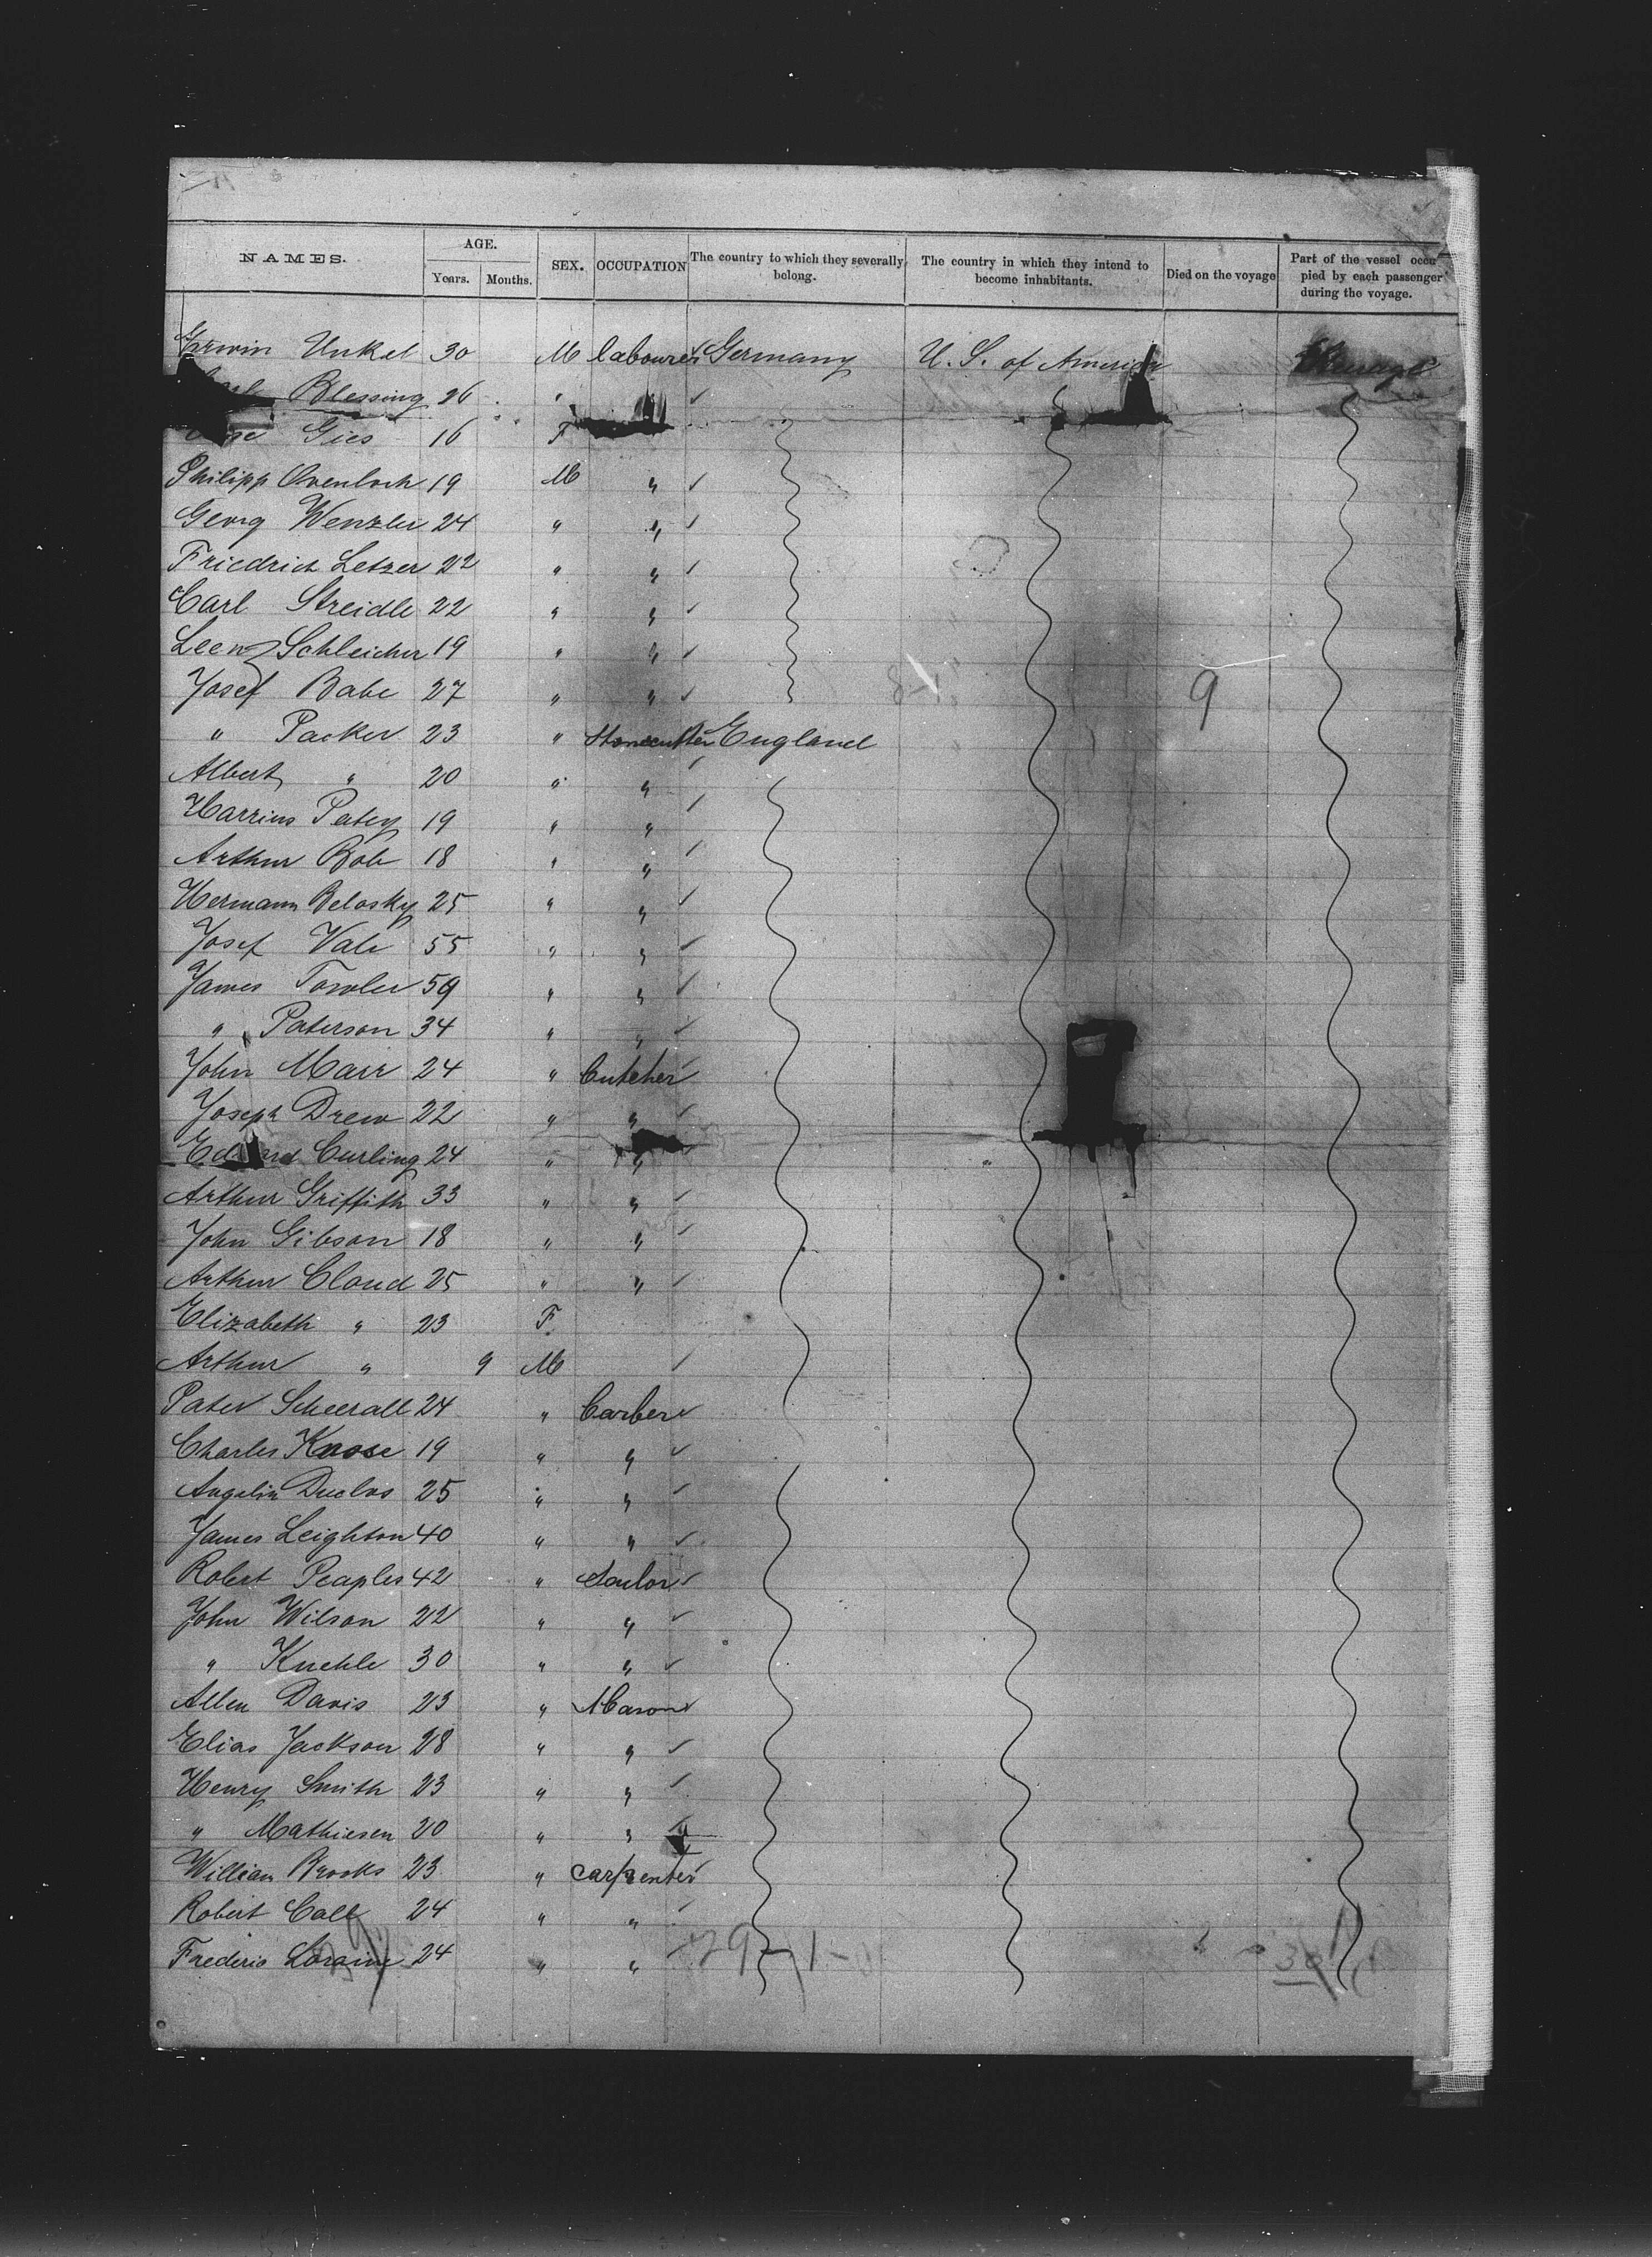 NAMES. AGE. SEX. OCCUPATION The country to which they severally belong. The country in which they intend to become inhabitants. Died on the voyage Part of the vessel occupied by each passenger during the voyage.
Years. Months.
Unkel 30 M labourer Germany U. S. of America
Blessing 26 "
Gies 16 F
Philipp 19 M "
Georg Wenzler 24 " "
Friedrich Letzer 22 " "
Carl Streidle 22 " "
Schleicher 19 " "
Josef Babe 27 " "
" Packer 23 " Stonecutter England
Albert " 20 " "
Patey 19 " "
Arthur 18 " "
Hermann Belosky 25 " "
Josef Vale 55 " "
James Towler 59 " "
" Paterson 34 " "
John Marr 24 " butcher
Joseph Drew 22 " "
Curling 24 " "
Arthur Griffith 33 " "
John Gibson 18 " "
Arthur Cloud 25 " "
Elizabeth " 23 F
Arthur " 9 M
Scheerall 24 " barber
Charles 19 " "
Duclos 25 " "
James Leighton 40 " "
Robert Peaples 42 "
John Wilson 22 " "
" Kuehle 30 " "
Allen Davis 23 " Mason
Elias Jackson 28 " "
Henry Smith 23 " "
" Mathiesen 20 " "
William Brooks 23 " carpenter
Robert Call 24 " "
Frederic Loraine 24 " "
9